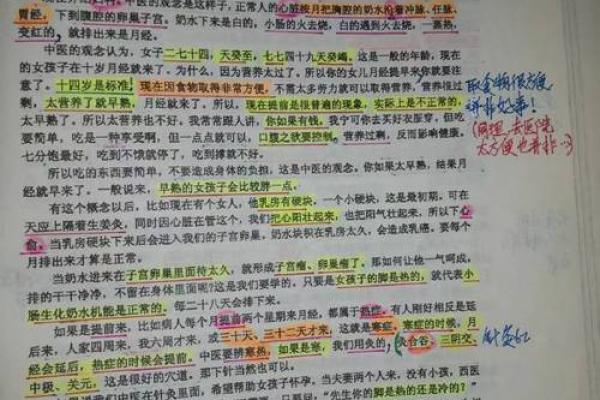 胃经。中医的观念是这样子，正常人的心脏按月把胸腔的奶水沿着冲脉、任脉、
下到腹腔的卵巢子宫。奶水下来是白的，小肠的火去烧，白的遇到火去烧，一蒸热，
变红的，就排出来是月经。
中医的观念认为，女子二七十四，天癸至，七七四十九天癸竭。这是一般的年龄，现在
的女孩子在十岁月经就来了。为什么，因为营养太过了。所以你的女儿月经提早来你就要注
意了。十四岁是标准，现在因食物取得非常方便，不需太多劳力就可以取得营养，营养很过
剩，太营养了就早熟，月经就来了。所以，现在提前是很普遍的现象，实际上是不正常的，
太早熟了。所以太营养也不好。我常常跟人讲，你如果有钱，我宁可你去买好衣服穿，但吃
要简单，吃是一种享受啊，但一点点就可以，口腹之欲要控制，营养过剩，反而影响健康。
七分饱最好，吃到不饿就停了，吃到撑就不好。
所以吃的东西要简单，不要造成身体的负担，这是中医的观念。你如果太早熟，结果月
经就早来了。一般说来，早熟的女孩子会比较胖一点。
有这个概念以后，比如现在有个女人，他乳房有硬块，一个小硬块，这是最初期，可在
天应上隔着生姜灸，同时因心脏在管这个，我们把心阳壮起来，也把阳气壮起来，所以下心
俞。当乳房硬块下来后会进入我们的子宫卵巢，奶水块积在乳房太久，会造成乳癌。要每个
月排出来才算是正常。
当奶水进来在子宫卵巢里面待太久，就形成子宫瘤、卵巢瘤了。那如何让他一气呵成，
排的干干净净，不留在身体里面呢？这是我们要学的。只要是女孩子的脚是热的，就代表小
肠生化奶水机能是正常的。每二十八天会排下来。
如果是提前来，比如病人每个月提前两个星期来月经，都属于热性。有人刚好相反是延
后来，人家四周来，我六周才来，或三十天、三十二天才来，这就是寒症。寒症的时候，月
经会延后，热症的时候会提前。中医要辨寒热，如果是寒，我们用灸的，灸合谷、三阴交、
中极、关元，这是很好的穴道，那下针当然也可以。
取食物很方便
并非好事！
太方便也普非
针灸